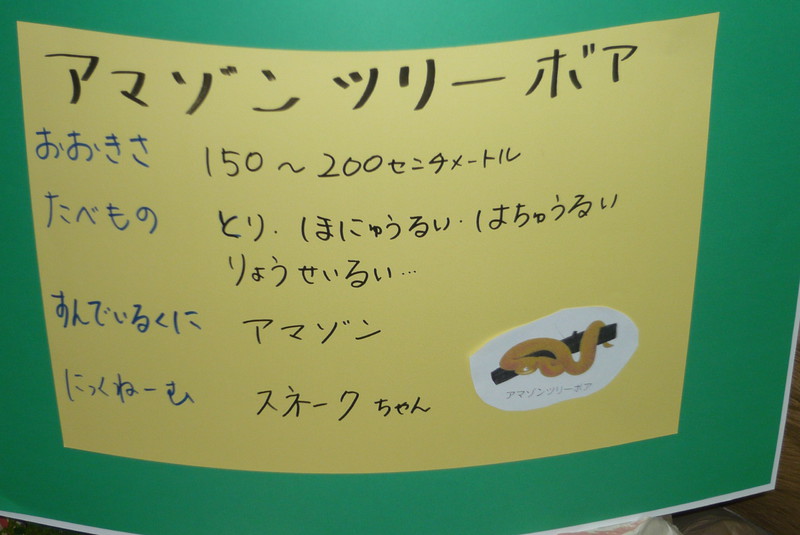 アマゾンツリーボア
おおきさ 150～200センチメートル
たべもの とり・ほにゅうるい・はちゅうるい
りょうせいるい…
すんでいるくに アマゾン
にっくねーむ スネークちゃん
アマゾンツリーボア